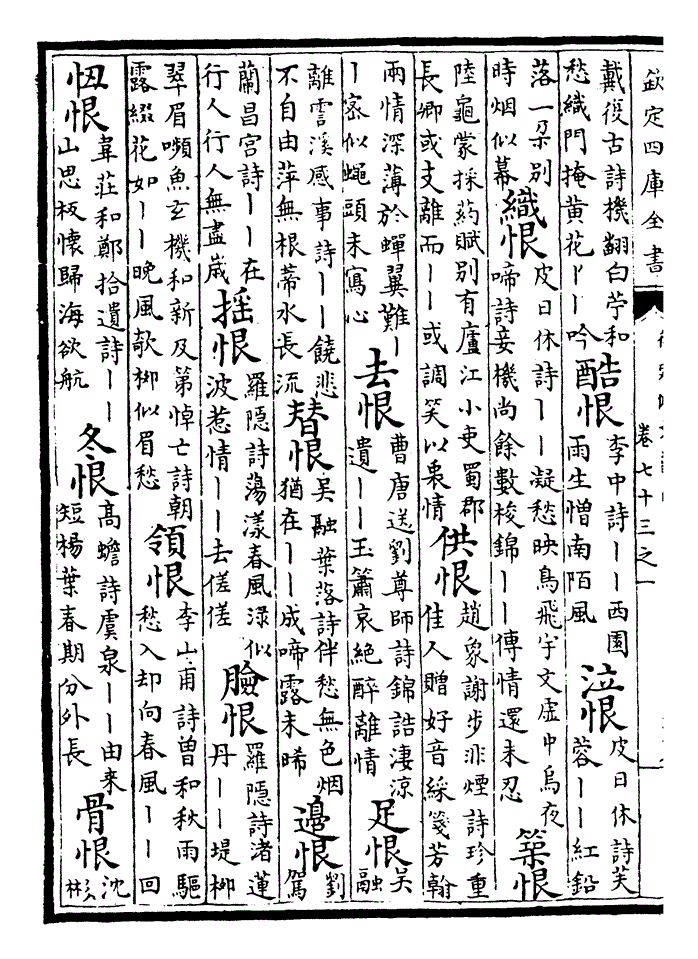 欽定四庫全書
卷七十三之一
戴復古詩機翻白苧和
愁織門掩黄花丨丨吟
酷恨
李中詩丨丨西園
雨生憎南陌風
泣恨
皮日休詩芙
蓉丨丨紅鉛
落一朶别
時烟似幕
織恨
皮日休詩丨丨凝愁映鳥飛宇文虚中烏夜
啼詩妾機尚餘數梭錦丨丨傳情還未忍
築恨
陸龜蒙採药賦别有廬江小吏蜀郡
長卿或支離而丨丨或調笑以衷情
供恨
趙象謝步非煙詩珍重
佳人贈好音綵箋芳翰
兩情深薄於蟬翼難丨
丨宻似蠅頭未寫心
去恨
曹唐送劉尊師詩錦誥淒涼
遺丨丨玉簫哀絶醉離情
足恨
吴
融
離霅溪感事詩丨丨饒悲
不自由萍無根蔕水長流
替恨
吴融葉落詩伴愁無色烟
猶在丨丨成啼露未晞
邉恨
劉
駕
蘭昌宫詩丨丨在
行人行人無盡嵗
揺恨
羅隠詩蕩漾春風渌似
波惹情丨丨去傞傞
臉恨
羅隠詩渚蓮
丹丨丨堤栁
翠眉嚬魚玄機和新及第悼亡詩朝
露綴花如丨丨晚風欹栁似眉愁
領恨
李山甫詩曽和秋雨驅
愁入却向春風丨丨回
忸恨
韋莊和鄭拾遺詩丨丨
山思板懷歸海欲航
冬恨
高蟾詩虞泉丨丨由来
短楊葉春期分外長
骨恨
沈
彬